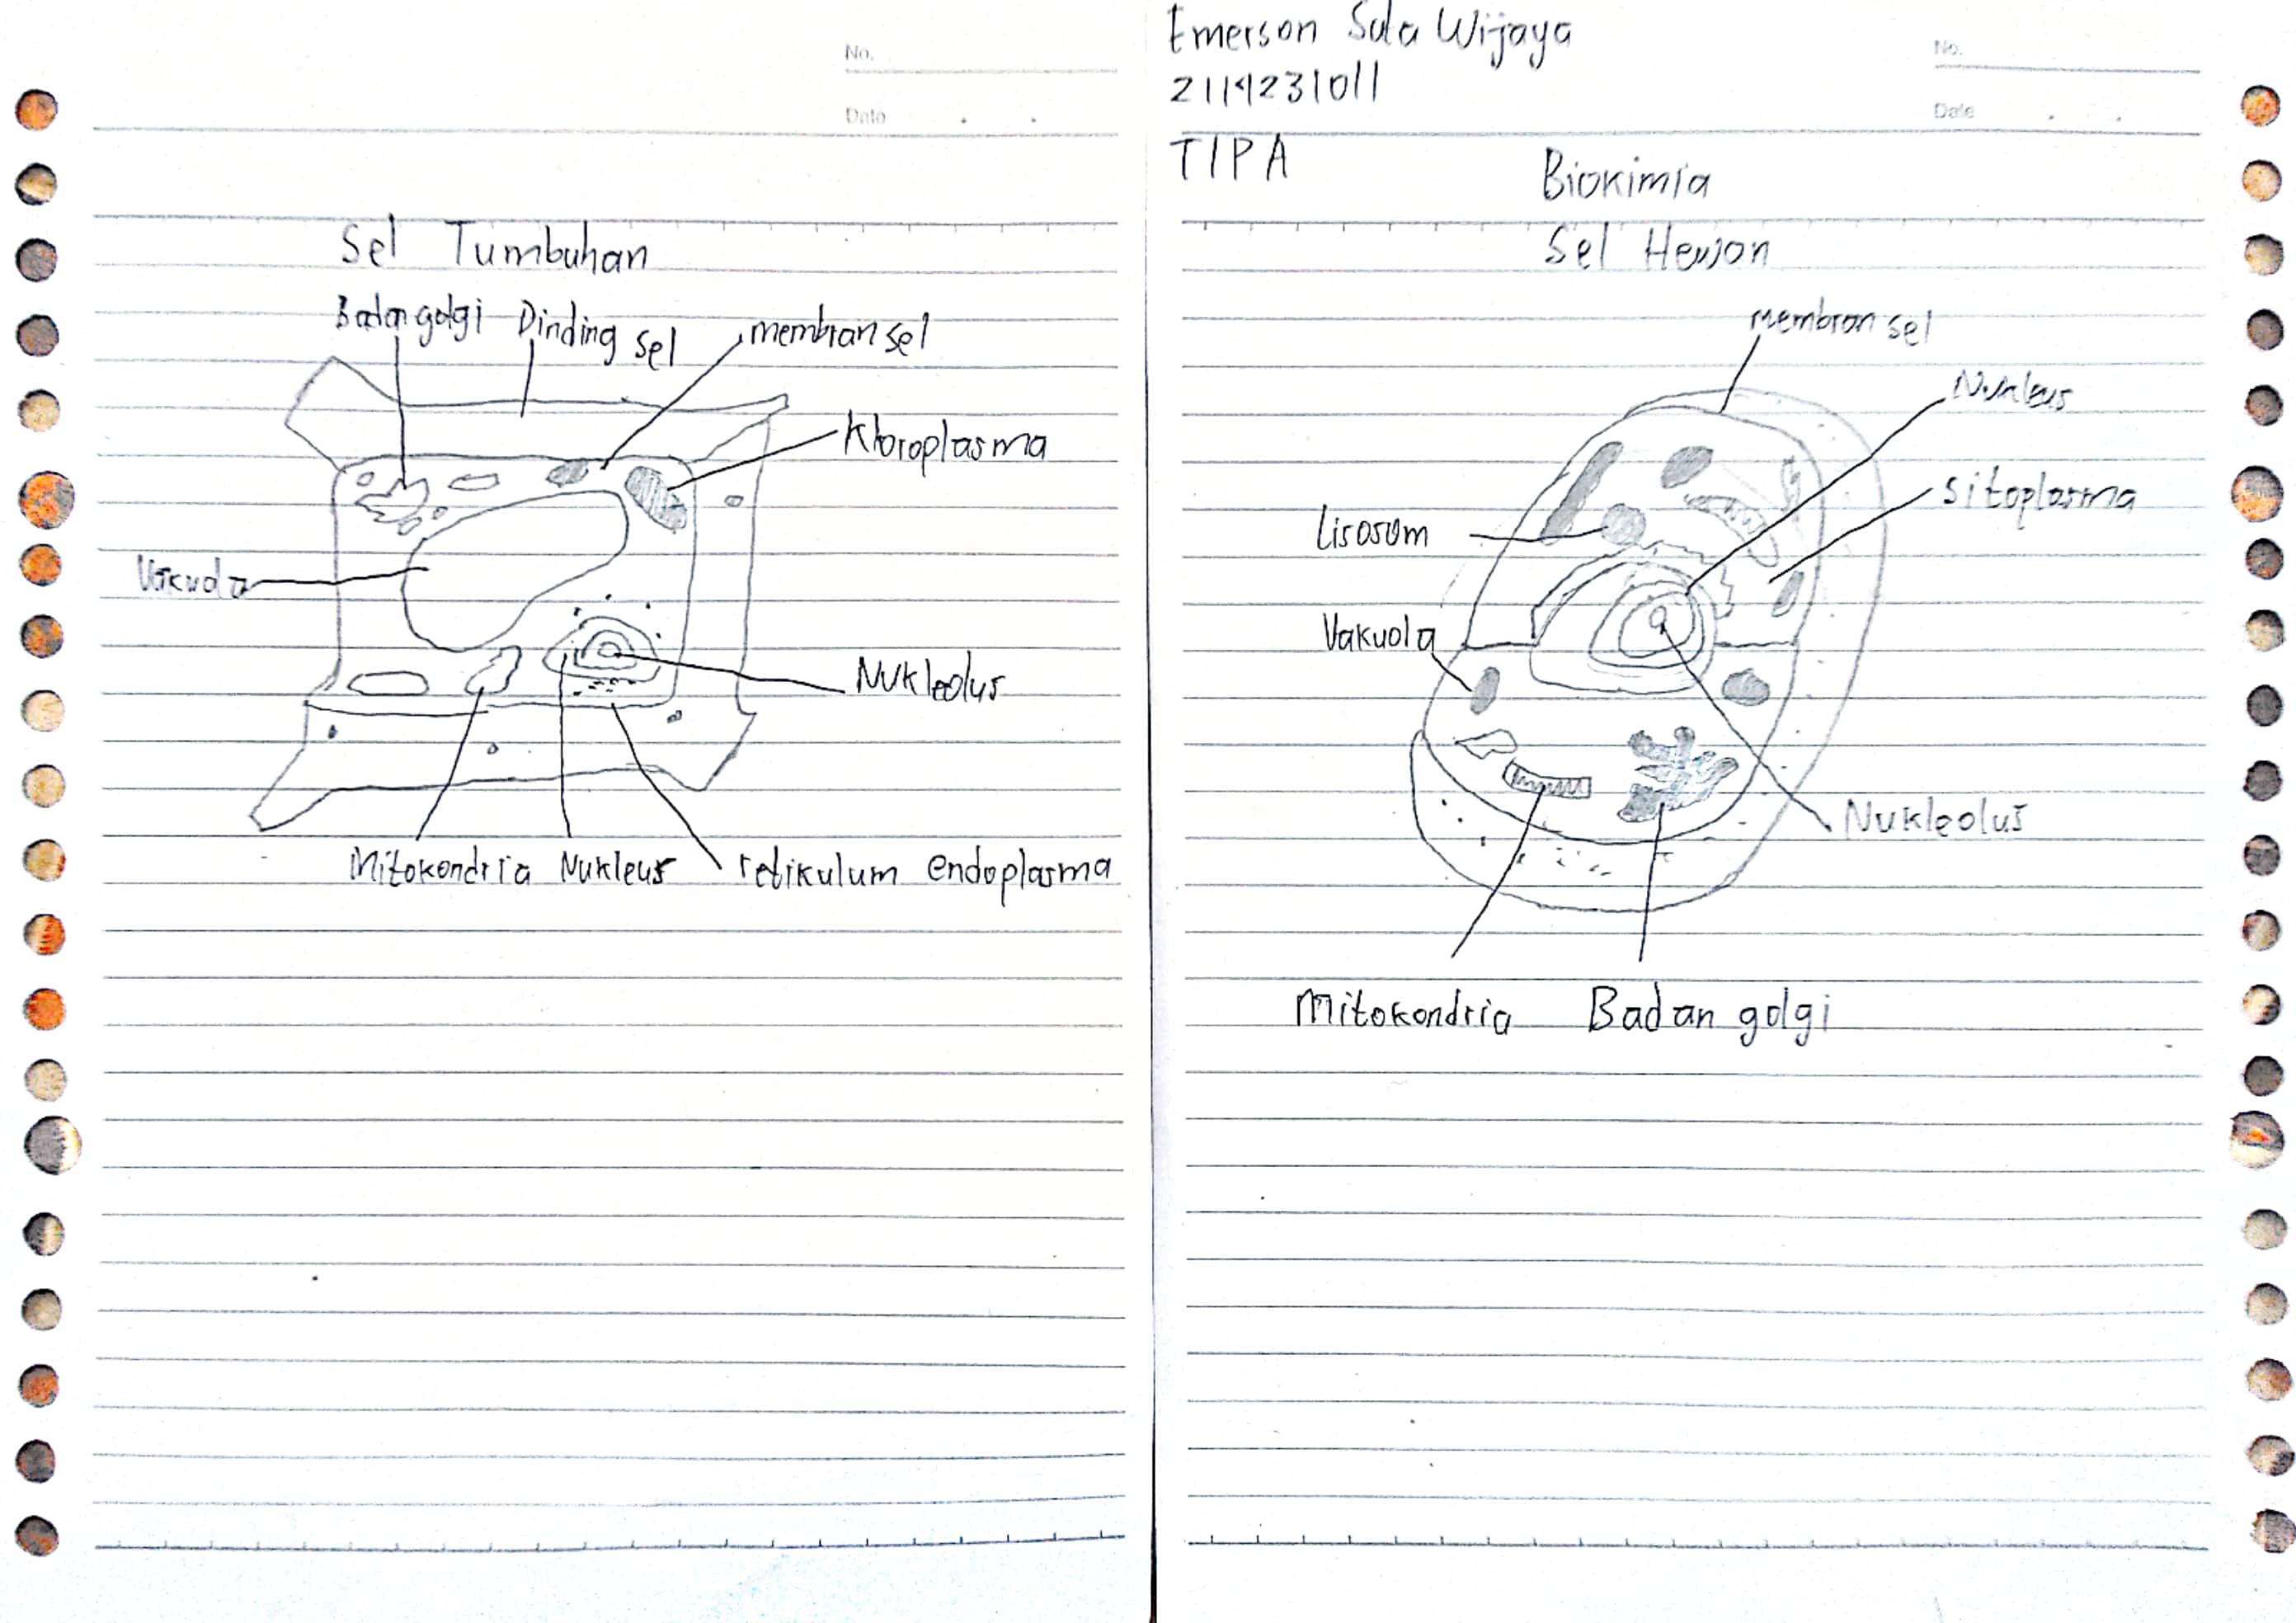 No.
Date
Sel Tumbuhan
Badan golgi Dinding sel membran sel
Kloroplasma
Vakuola
Nukleolus
Mitokondria Nukleus retikulum endoplasma
Emerson Suta Wijaya
No.
2114231011
Date
TIPA
Biokimia
Sel Hewan
membran sel
Nukleus
sitoplasma
Lisosom
Vakuola
Nukleolus
Mitokondria Badan golgi